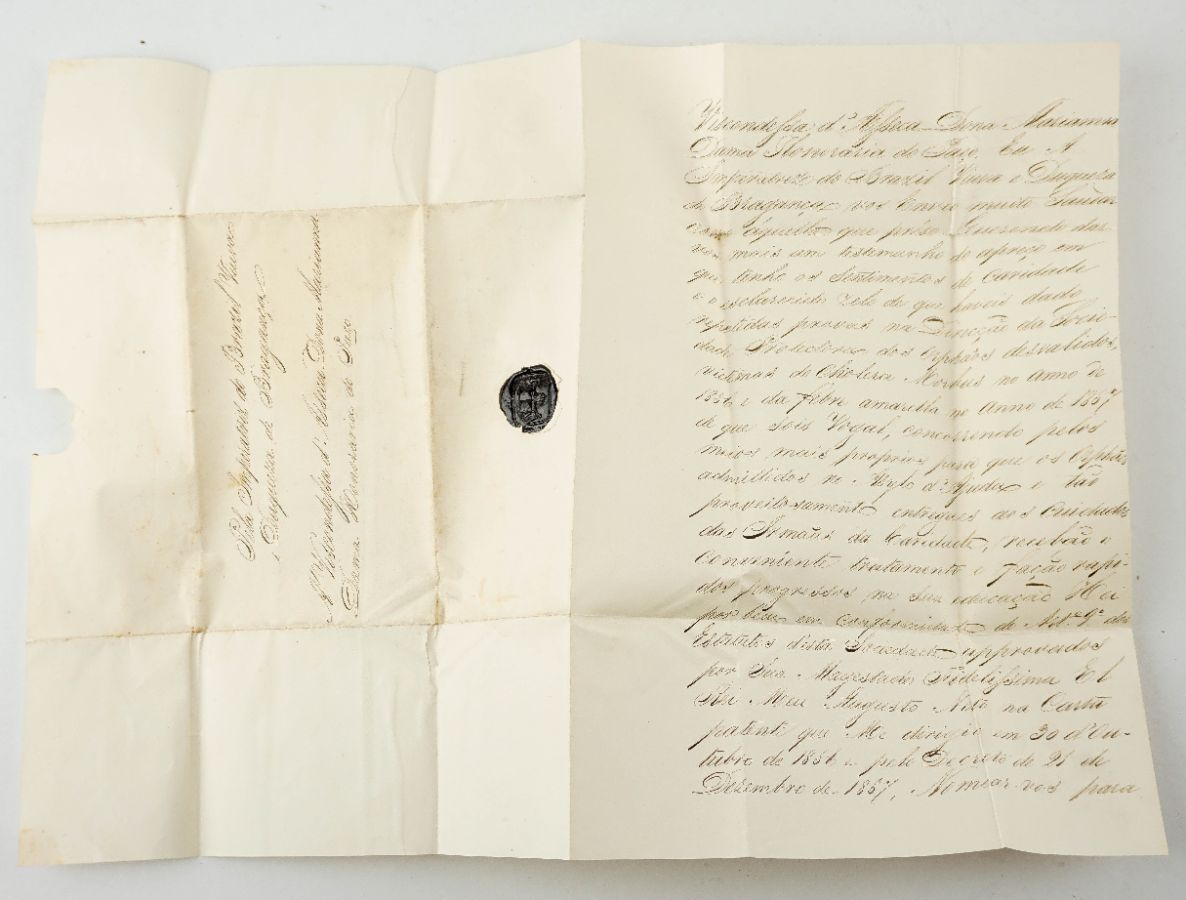 Pela Imperatriz do Brazil Viuva
e Duqueza de Bragança
Á Viscondessa d'Asseca Dona Marianna
Dama Honoraria do Paço
Viscondessa d'Asseca Dona Marianna
Dama Honoraria do Paço. Eu A
Imperatriz do Brazil Viuva e Duqueza
de Bragança vos Envio muito Saudar
como áquella que prézo. Querendo dar-
vos mais um testemunho do apreço em
que tenho os Sentimentos de Caridade
e o esclarecido zelo de que haveis dado
repetidas provas na Direcção da Socie-
dade Protectora dos Orphãos desvalidos,
victimas da Cholera Morbus no anno de
1856 e da febre amarella no Anno de 1857
de que sois Vogal, concorrendo pelos
meios mais proprios para que os Orphãos
admittidos no Asylo d'Ajuda e tão
proveitosamente entregues aos cuidados
das Irmãas da Caridade, recebão o
conveniente tratamento e fação rapi-
dos progressos na sua educação Hei
por bem em conformidade do Art.º 9º dos
Estatutos desta Sociedade approvados
por Sua Magestade Fidelissima El
Rei Meu Augusto Neto na Carta
patente que Me dirigio em 30 d'Ou-
tubro de 1856 e pelo Decreto de 21 de
Dezembro de 1857, Nomear-vos para